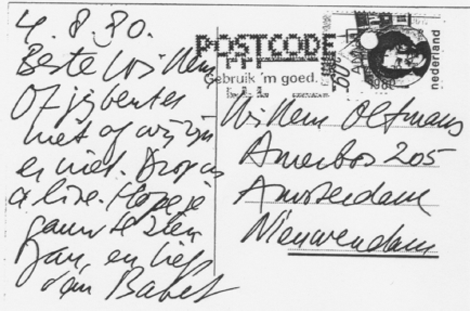 4.8.80.
Beste Willem
Of jij bent er
niet of wij zijn
er niet. Drop us
a line. Hope je
gauw te zien
Dan, en liefs
van Babet
POSTCODE
Gebruik 'm goed.
nederland
Willem Oltmans
Amerbos 205
Amsterdam
Nieuwendam